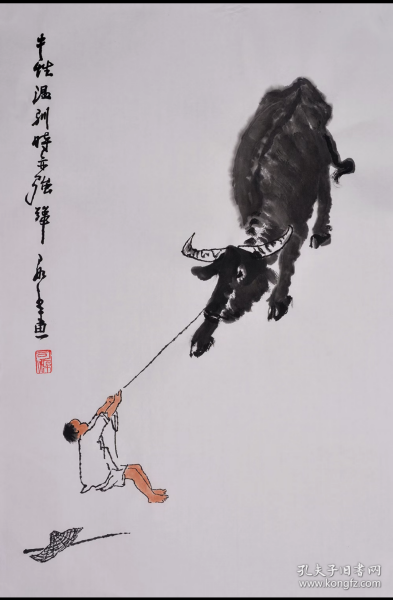 牛性温驯时亦强犟
可染画
孔夫子旧书网
www.kongfz.com